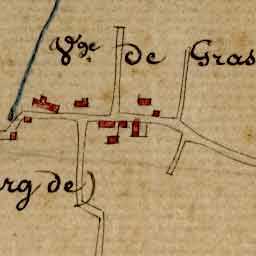 Vge. de Gras
rg de)